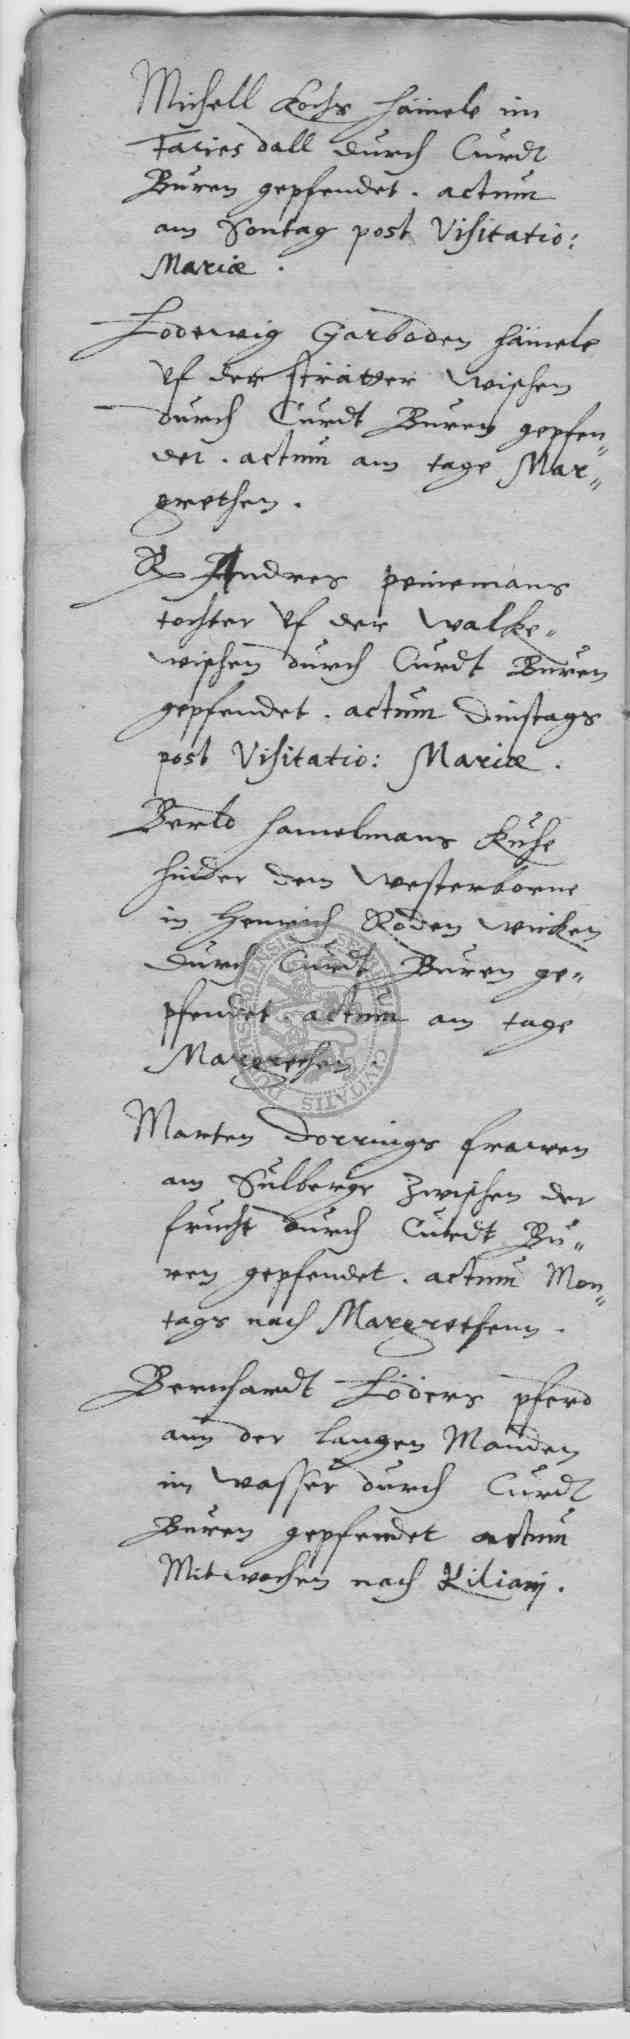 Michell Kochs Hämele im
Facies dall durch Curdt
Buren gepfendet. actum
am Sontag post Visitatio:
Mariæ.
Lodewig Garboden hämele
vf der sträter wischen
durch Curdt Buren gepfen„
det. actum am tage Mar„
grethen.
Andres peinemans
tochter vf der Walke„
wischen durch Curdt Buren
gepfendet. actum Dinstags
post Visitatio: Mariæ.
Berld Hamelmans Kühe
hinder dem Westerborne
in Henrich Roden wicken
durch Curdt Buren ge„
pfendet. actum am tage
Margrethen.
Marten Dorrings frawen
am Sulberge zwischen der
frucht durch Curdt Bu„
ren gepfendet. actum Mon„
tags nach Margrethenn.
Bernhardt Löders pferd
ann der langen Manden
im wasser durch Curdt
Buren gepfendet actum
Mitwochen nach Kiliani.
CIVITATIS